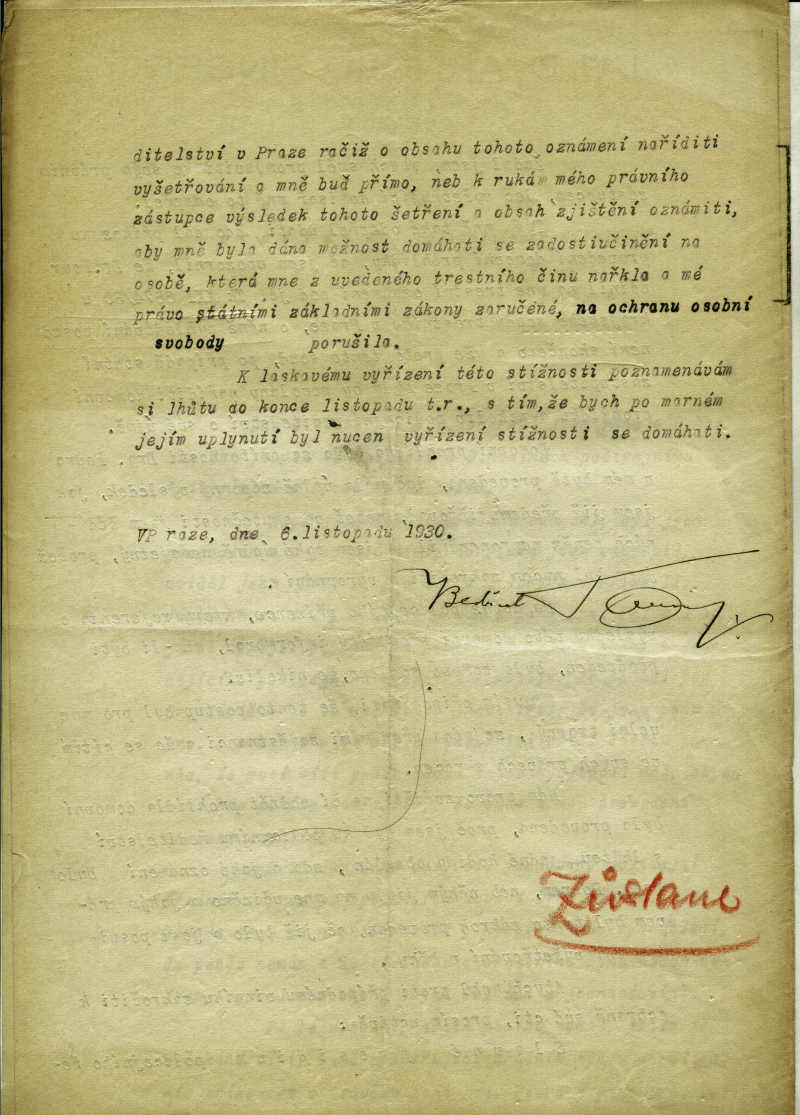 ditelství v Praze račiž o obsahu tohoto oznámení naříditi
vyšetřování a mně buď přímo, neb k rukám mého právního
zástupce výsledek tohoto šetření a obsah zjištění oznámiti,
aby mně byla dána možnost domáhati se zadostiučinění na
osobě, která mne z uvedeného trestního činu nařkla a mé
právo státními základními zákony zaručené, na ochranu osobní
svobody porušila.
K láskavému vyřízení této stížnosti poznamenávám
si lhůtu do konce listopadu t.r., s tím,že bych po marném
jejím uplynutí byl nucen vyřízení stížnosti se domáhati.
VP raze, dne 6.listopadu 1930.
Zůstane